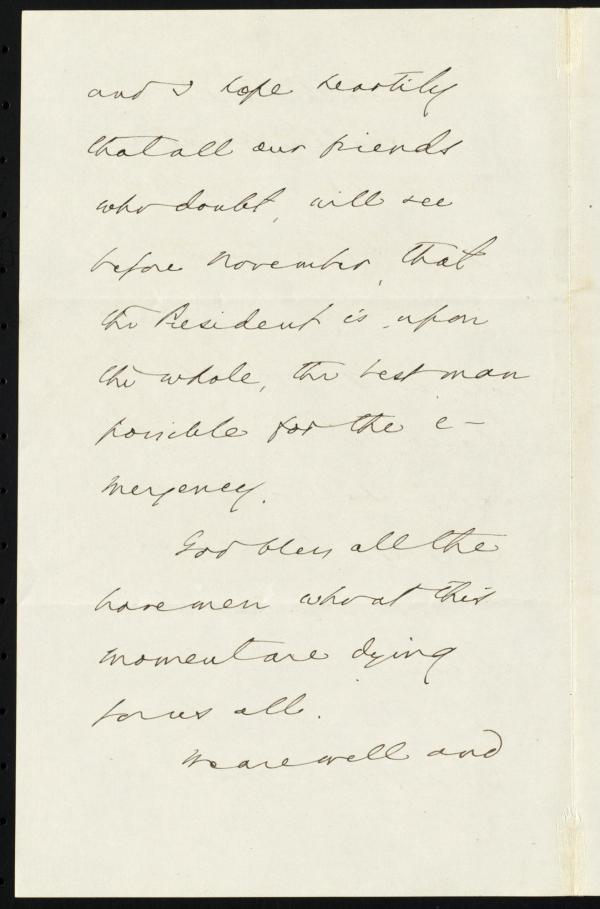 and I hope heartily
that all our friends
who doubt, will see
before November, that
the President is, upon
the whole, the best man
possible for the e-
mergency.
God bless all the
brave men who at this
moment are dying
for us all.
We are well and